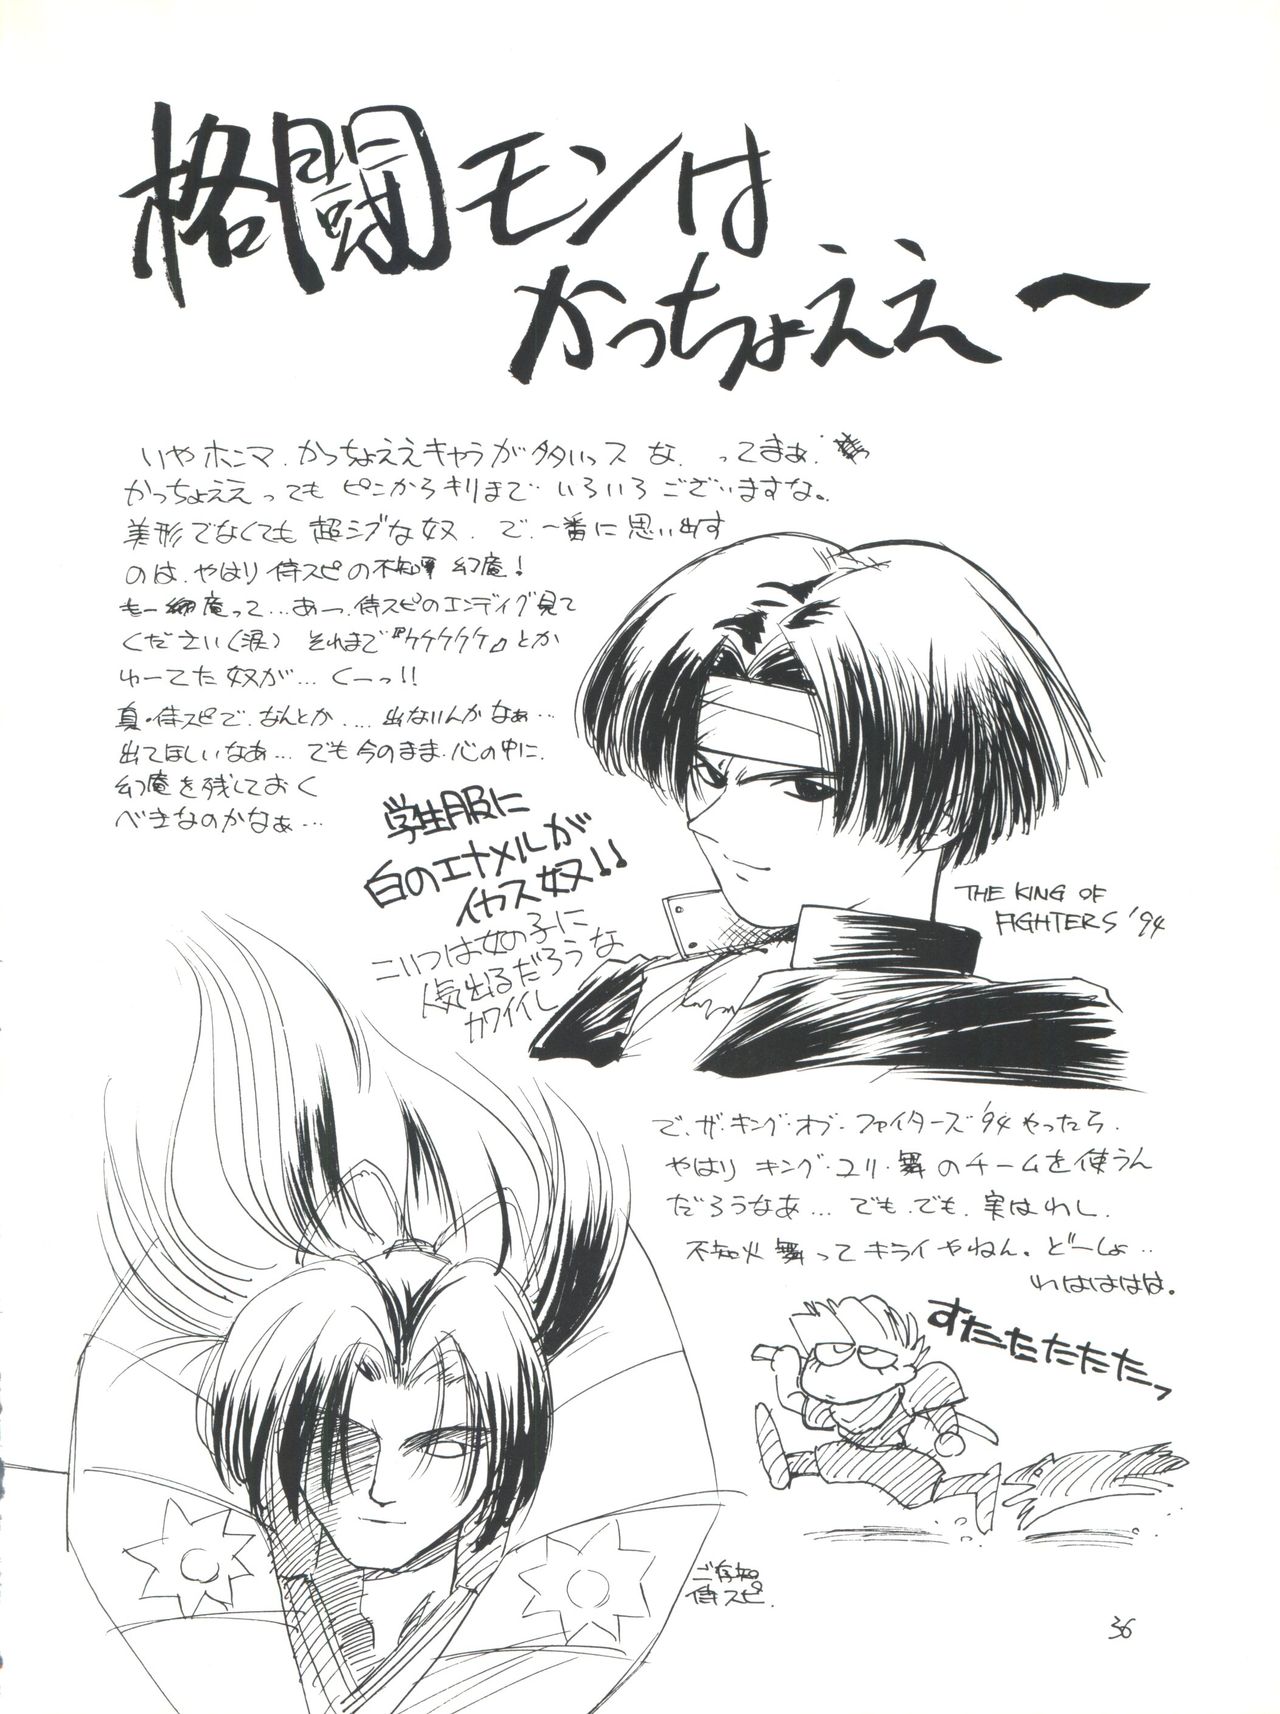 格闘モンは
かっちょええ〜
いやホンマ、かっちょええキャラが多いっスな、ってまぁ、
かっちょええってもピンからキリまでいろいろございますな。
美形でなくても超シブな奴、で、一番に思い出す
のは、やはり侍スピの不知火幻庵!
もー幻庵って…あーっ、侍スピのエンディグ見て
ください(涙) それまで『ケケケケケ』とか
ゆーてた奴が…くーっ!!
真・侍スピで、なんとか…出ないんかなぁ…
出てほしいなぁ…でも今のまま、心の中に
幻庵を残しておく
べきなのかなぁ…
学生服に
白のエナメルが
イカス奴!!
こいつは女の子に
人気出るだろうな
カワイイし
THE KING OF
FIGHTERS '94
で、ザ・キング・オブ・ファイターズ'94やったら、
やはりキング・ユリ・舞のチームを使うん
だろうなあ…でも、でも、実はわし、
不知火舞ってキライやねん。どーしょ‥
わはははは。
すたーたたたたっ
ご存知
侍スピ.
36